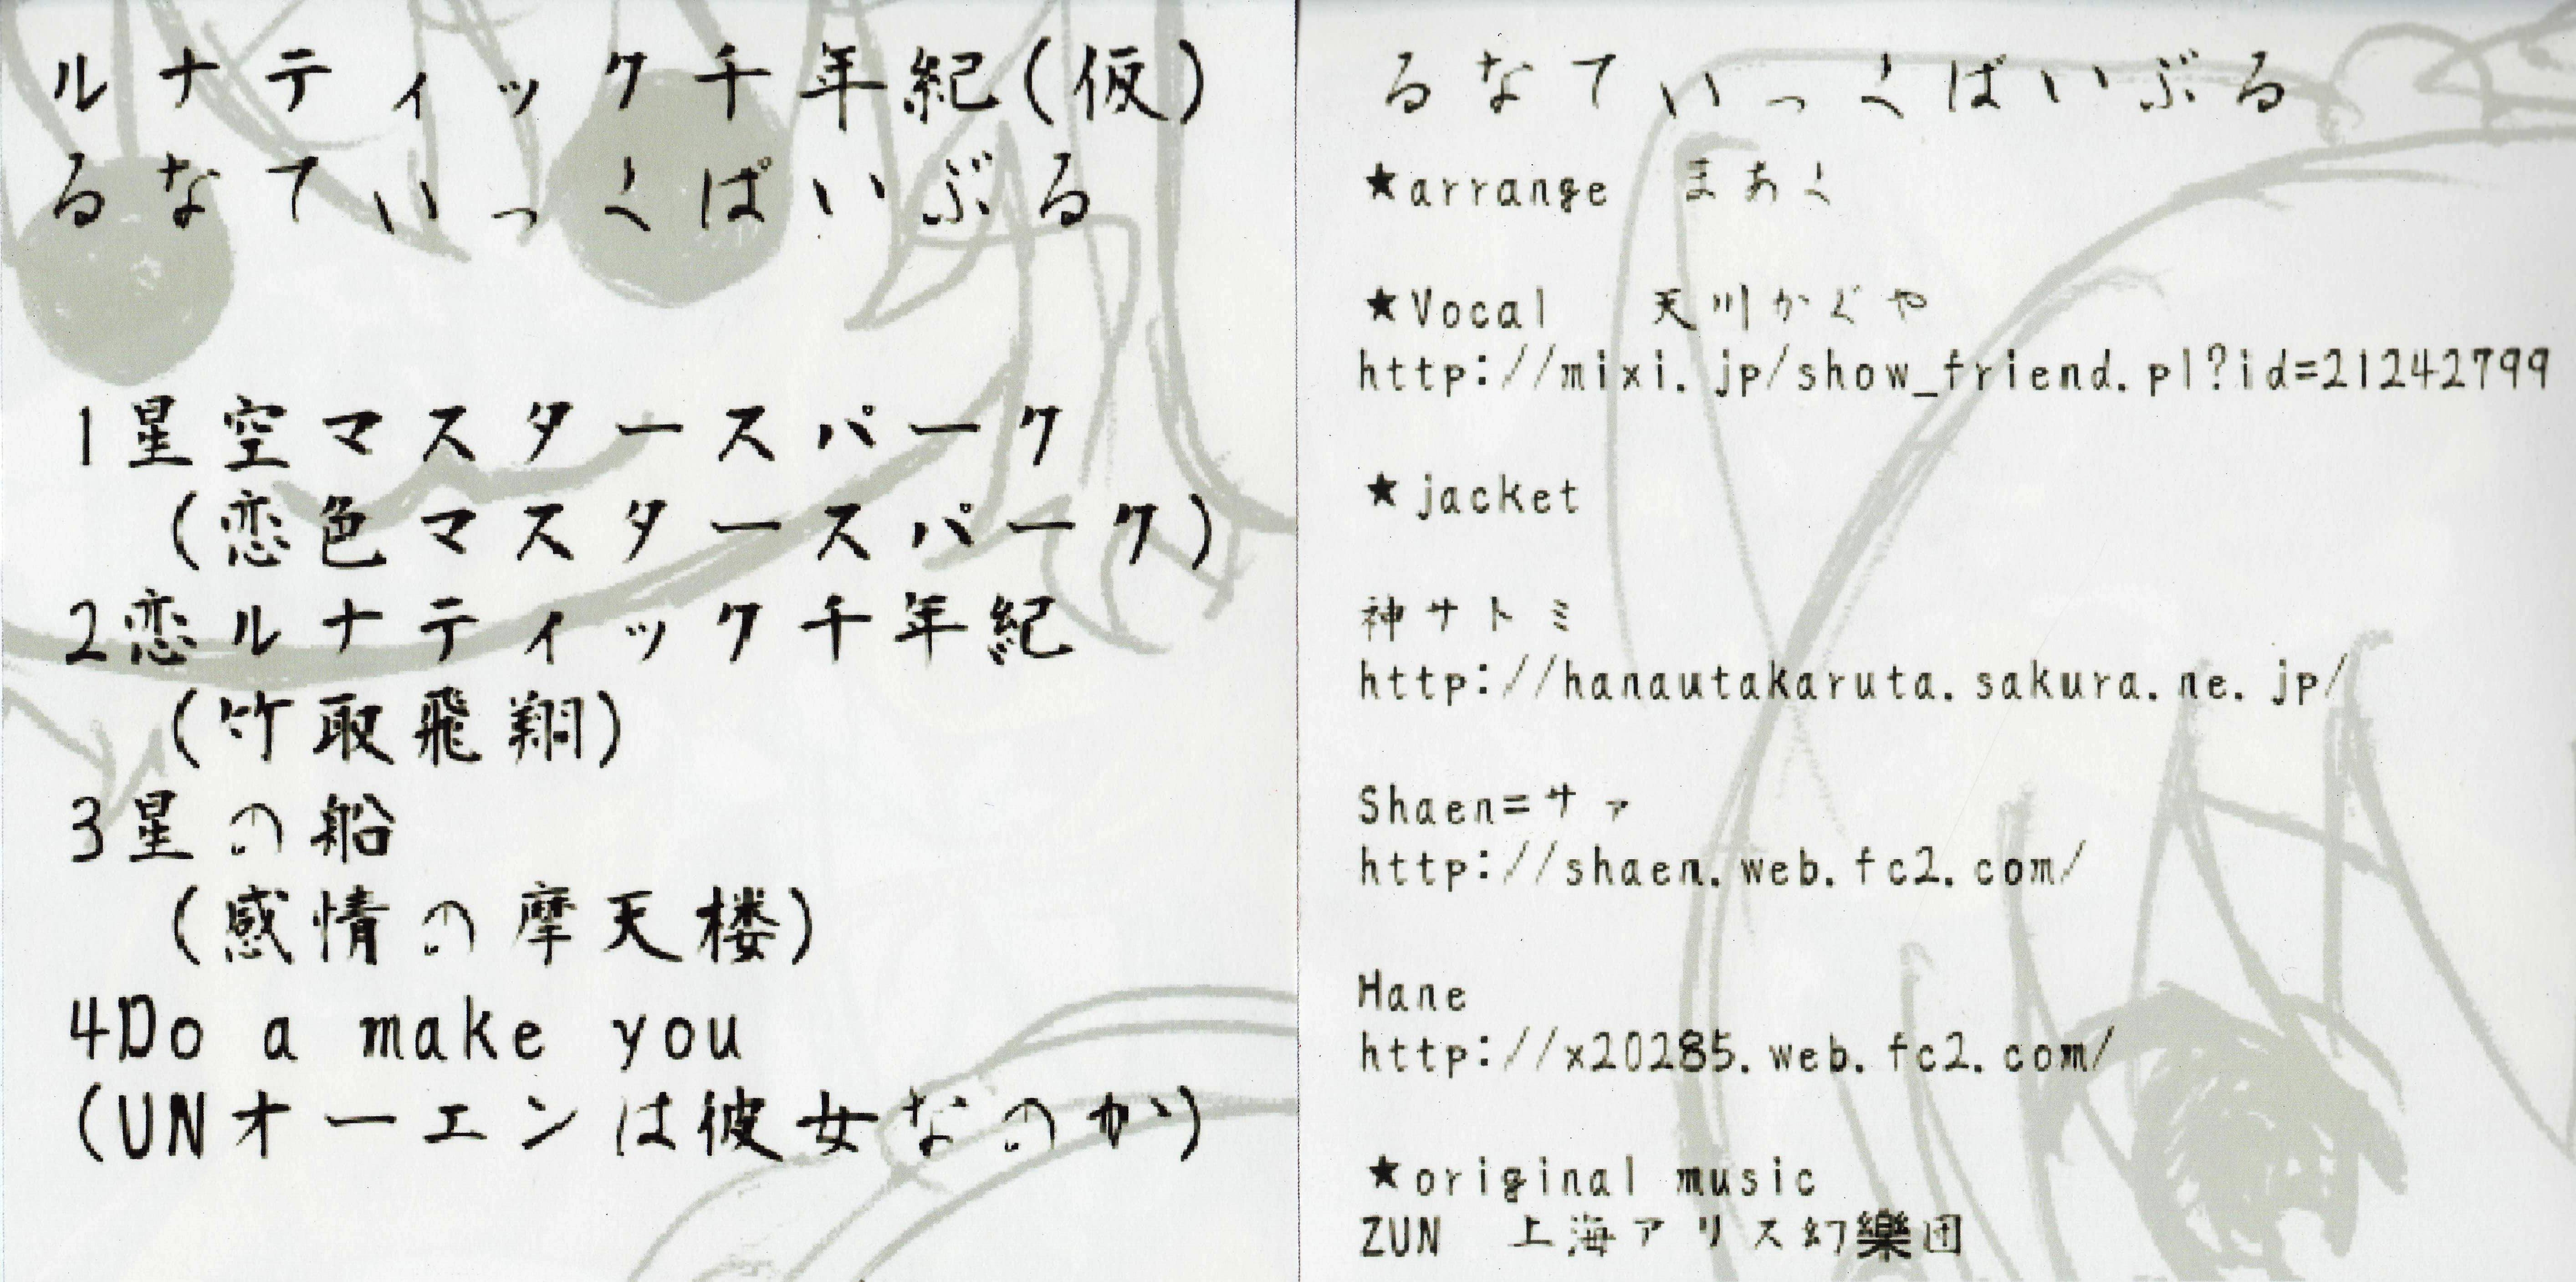 ルナティック千年紀(仮)
るなてぃっくばいぶる
1星空マスタースパーク
(恋色マスタースパーク)
2恋ルナティック千年紀
(竹取飛翔)
3星の船
(感情の摩天楼)
4Do a make you
(UNオーエンは彼女なのか)
るなてぃっくばいぶる
★arrange まあく
★Vocal 天川かぐや
http://mixi.jp/show_friend.pl?id=21242799
★jacket
神サトミ
http://hanautakaruta.sakura.ne.jp/
Shaen=サァ
http://shaen.web.fc2.com/
Hane
http://x20285.web.fc2.com/
★original music
ZUN 上海アリス幻樂団